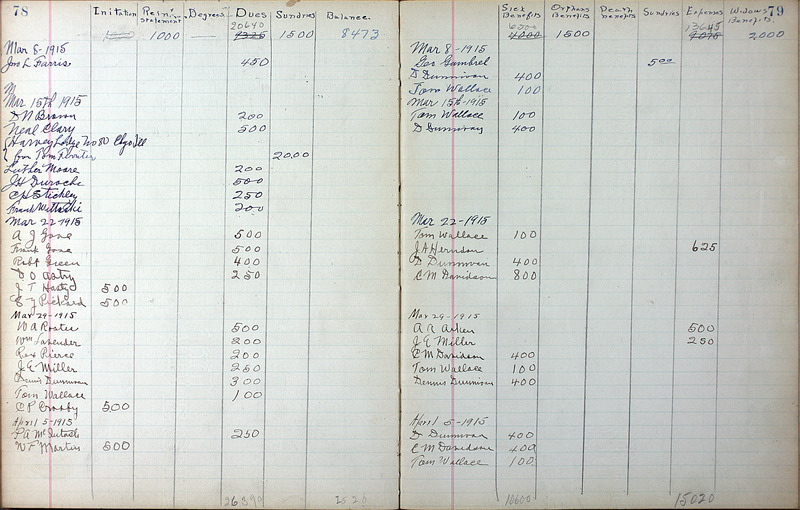 78
Initation Rein-statement Degrees Dues Sundries Balance
20640
1000 — 1500 8473
Mar 8-1915
Jno L Farris 450
M
Mar 15th 1915
D N Brown 200
Neal Clary 500
Harvey Lodge No 80
for Tom 2000
Luther Moore 200
J H Duroche 500
C H Stickley 250
Frank 200
Mar 22-1915
A J Gone 500
Frank Gone 500
Robt Green 400
D O 250
J T Hasty 500
Pickard 500
Mar 29-1915
W A 500
Wm Lavender 200
Rox Pierce 200
J E Miller 250
Dennis Dunnivan 300
Tom Wallace 100
C P Crosby 500
April 5-1915
F A 250
W F Martin 500
26390 2520
79
Sick Benefits Orphans Benefits Death Benefits Sundries Expenses Widows Benefits
6000 13645
4000 1500 9075 2000
Mar 8-1915
Geo Gambrel 500
D Dunnivan 400
Tom Wallace 100
Mar 15th-1915
Tom Wallace 100
D Dunnivan 400
Mar 22-1915
Tom Wallace 100
J A Herndon 625
D Dunnivan 400
C M Davidson 800
Mar 29-1915
A R Aiken 500
J E Miller 250
C M Davidson 400
Tom Wallace 100
Dennis Dunnivan 400
April 5-1915
D Dunnivan 400
C M Davidson 400
Tom Wallace 100
10600 15020